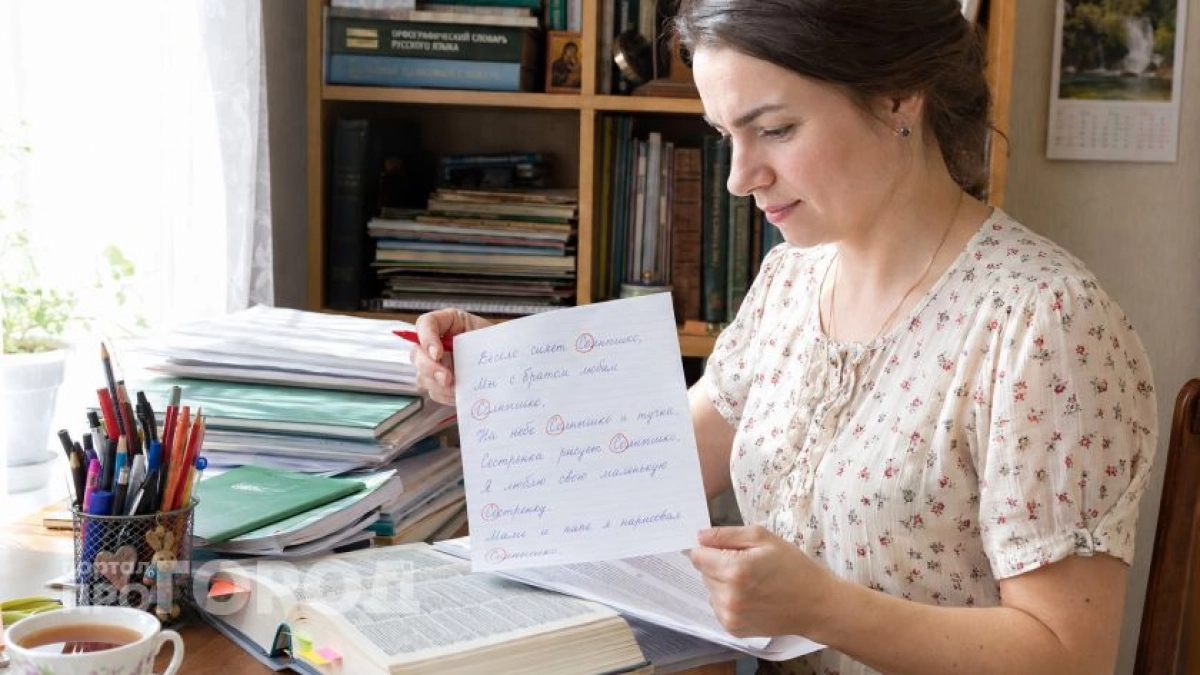 ОРФОГРАФИЧЕСКИЙ СЛОВАРЬ
РУССКОГО ЯЗЫКА
Весело сияет Солнышко,
Мы с братом любим
Солнышко.
На небе Солнышко и тучка.
Сестрёнка рисует Солнышко.
Я люблю свою маленькую
Сестрёнку.
Маме и папе я нарисовал
Солнышко.
ПОРТАЛ
ПРОГОРОД